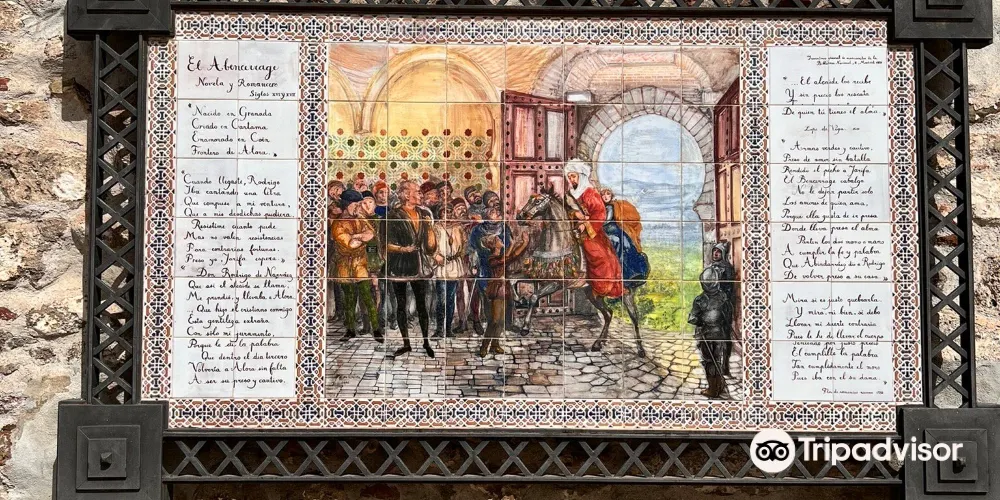 El Abencerrage
Novela y Romancero
Siglos XVI y XVII
"Nacido en Granada
Criado en Cartama
Enamorado en Coín
Frontero de Alora."
"Cuando llegaste, Rodrigo
Iba cantando una letra
Que compuse a mi ventura,
Que a mis desdichas pudiera.
Resistime cuanto pude
Mas no valen resistencias
Para contrarias fortunas.
Preso yo Jarifa espera."
"Don Rodrigo de Narváez
Que así el alcaide se llama,
Me prendió, y llevaba a Alora
Que hijo el cristiano conmigo
Esta gentileza extraña
Con sólo mi juramento
Porque le di la palabra
Que dentro el día tercero
Volvería a Alora sin falta
A ser su preso y cautivo.
"El alcaide los recibe
Y sin precio los rescata
De quien tú tienes el alma"
Lope de Vega
"Armas verdes y cautivo,
Preso de amor sin batalla
Rendido el pecho a Jarifa,
El Bencerraje cabalga
No le dejan partir solo
Los amores de quien ama,
Porque ella gusta de ir presa
Donde lleva presa el alma
Parten los dos mano a mano
A cumplir la fe y palabra
Que Abindarráez dio a Rodrigo
De volver preso a su casa."
Mira si es justo quebrarla
Y mira, mi bien, si debo
Llorar mi suerte contraria
Pues le he de llevar el cuerpo
El cumplille la palabra
Tan cumplidamente el moro
Pues iba con el su dama."
Tripadvisor